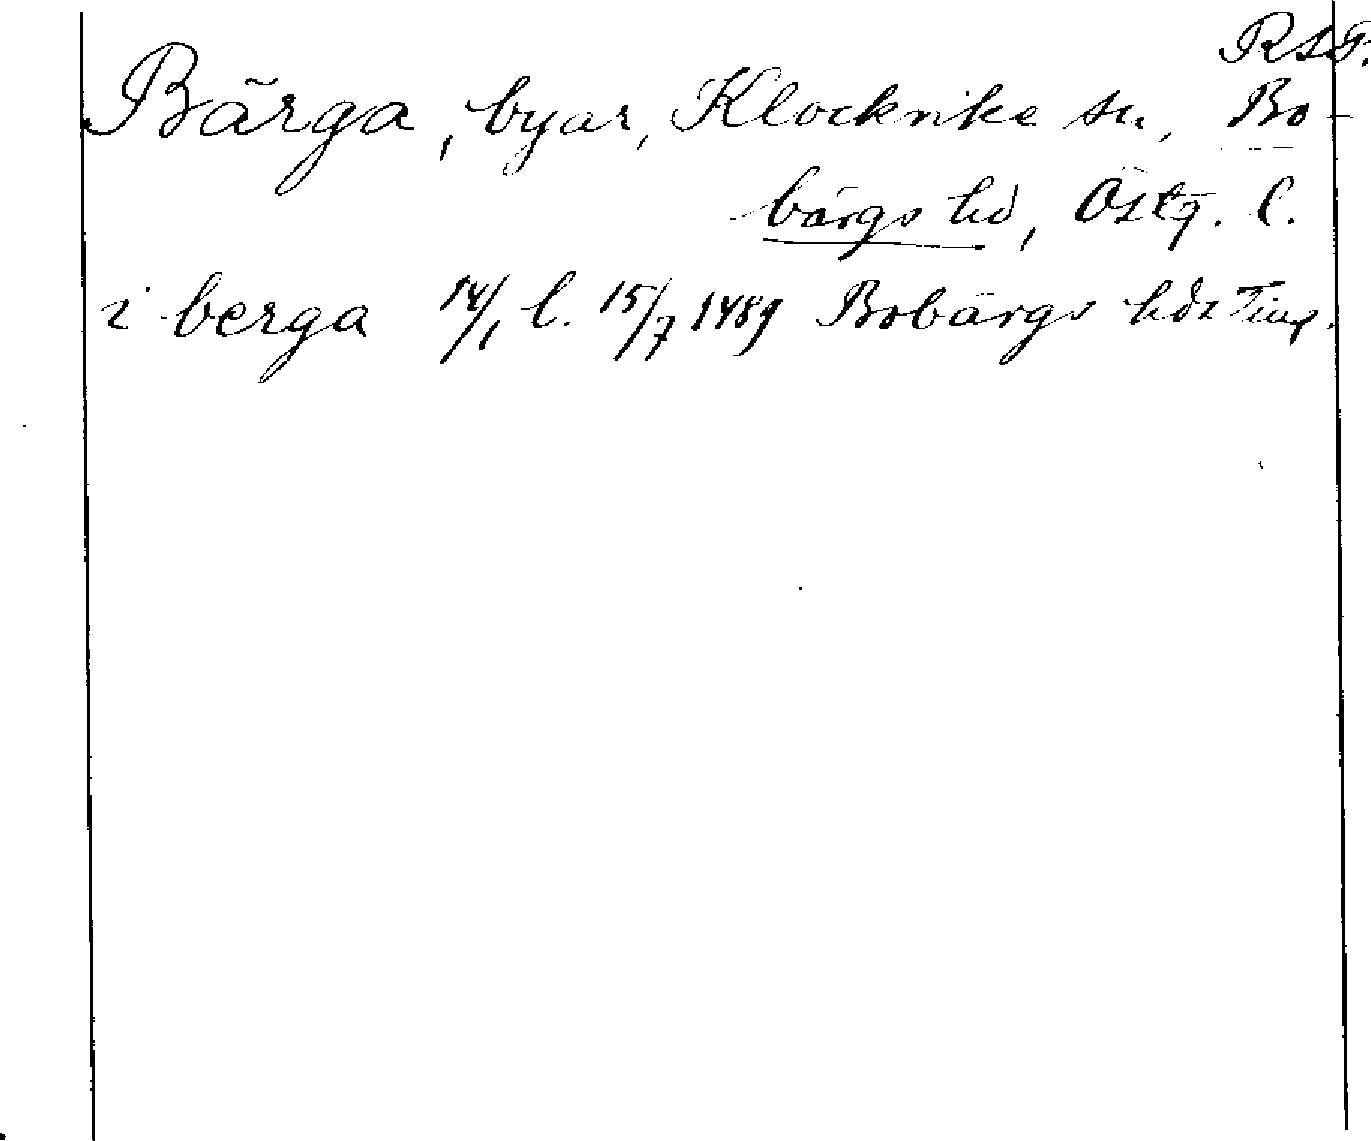 RAP.
Bärga, byar, Klockrike sn, Bo-
bärgs hd, Östg. l.
i berga 14/1 l. 15/7 1489 Bobärgs hds Ting.